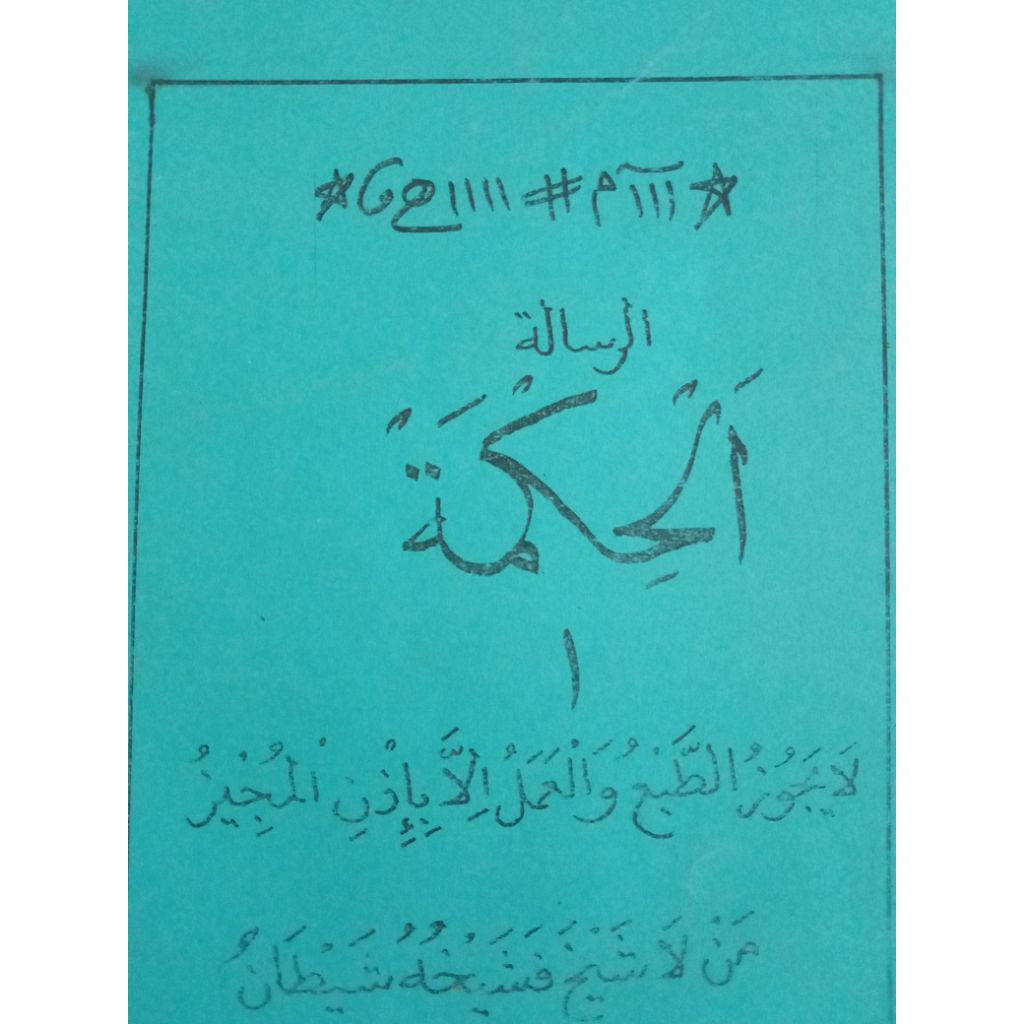 ★ ااا آ م # اااا ھ 6 ★
الرسالة
اَلْحِكْمَةْ
١
لَا يَجُوْزُ الطَّبْعُ وَالْعَمَلُ اِلَّا بِإِذْنِ الْمُجِيْزُ
مَنْ لَا شَيْخَ فَشَيْخُهُ شَيْطَانٌ